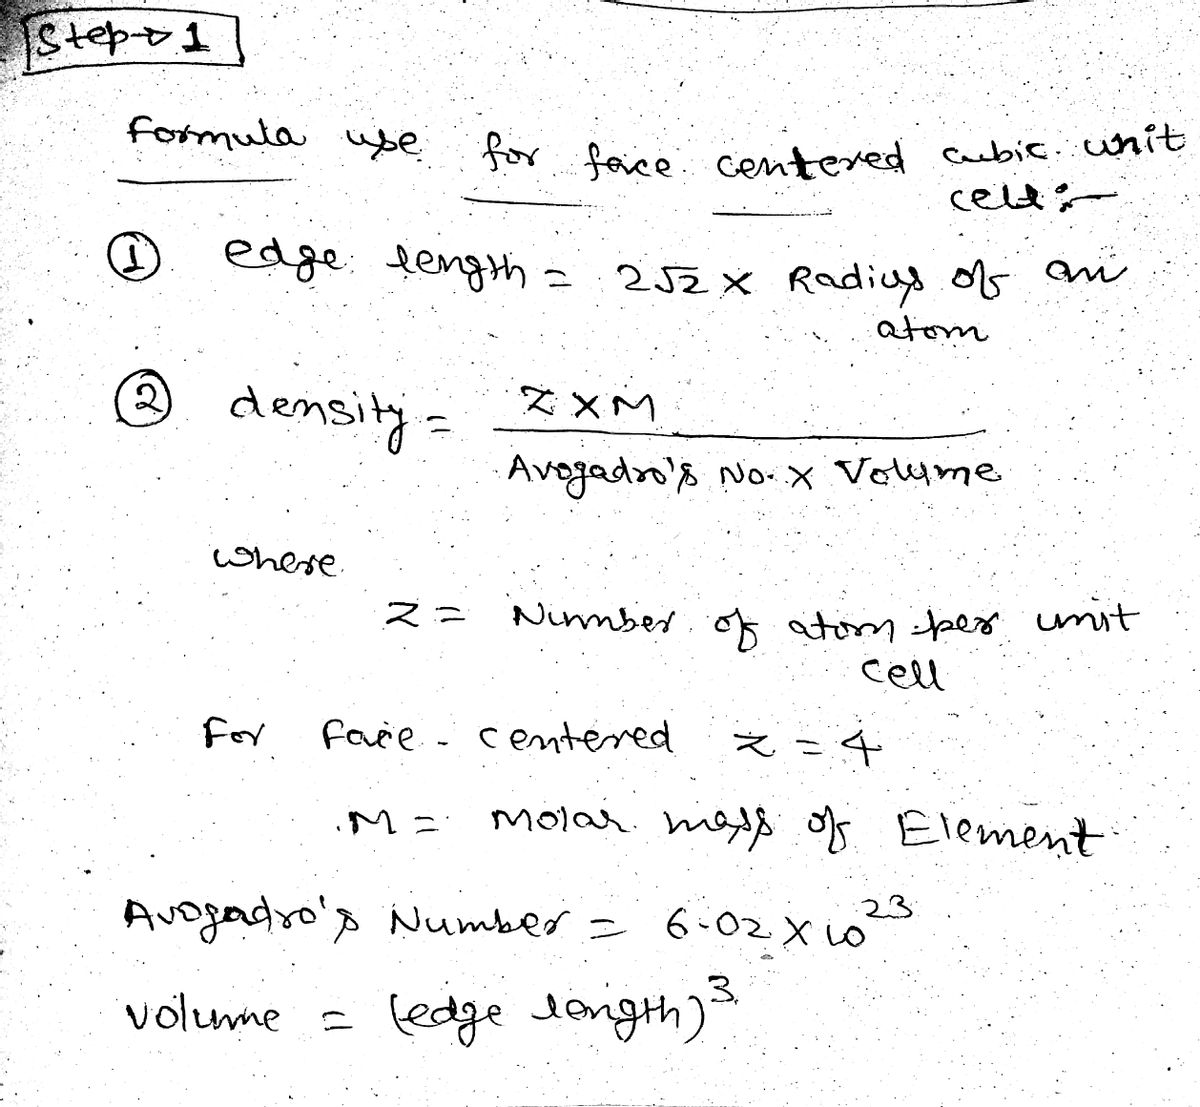 Step → 1
Formula use for face centered cubic unit
cell :-
① edge length = 2√2 × Radius of an
atom
② density = Z × M
Avogadro's No. × Volume
where
Z = Number of atom per unit
cell
For face - centered Z = 4
M = Molar mass of Element
Avogadro's Number = 6.02 × 10²³
volume = (edge length)³